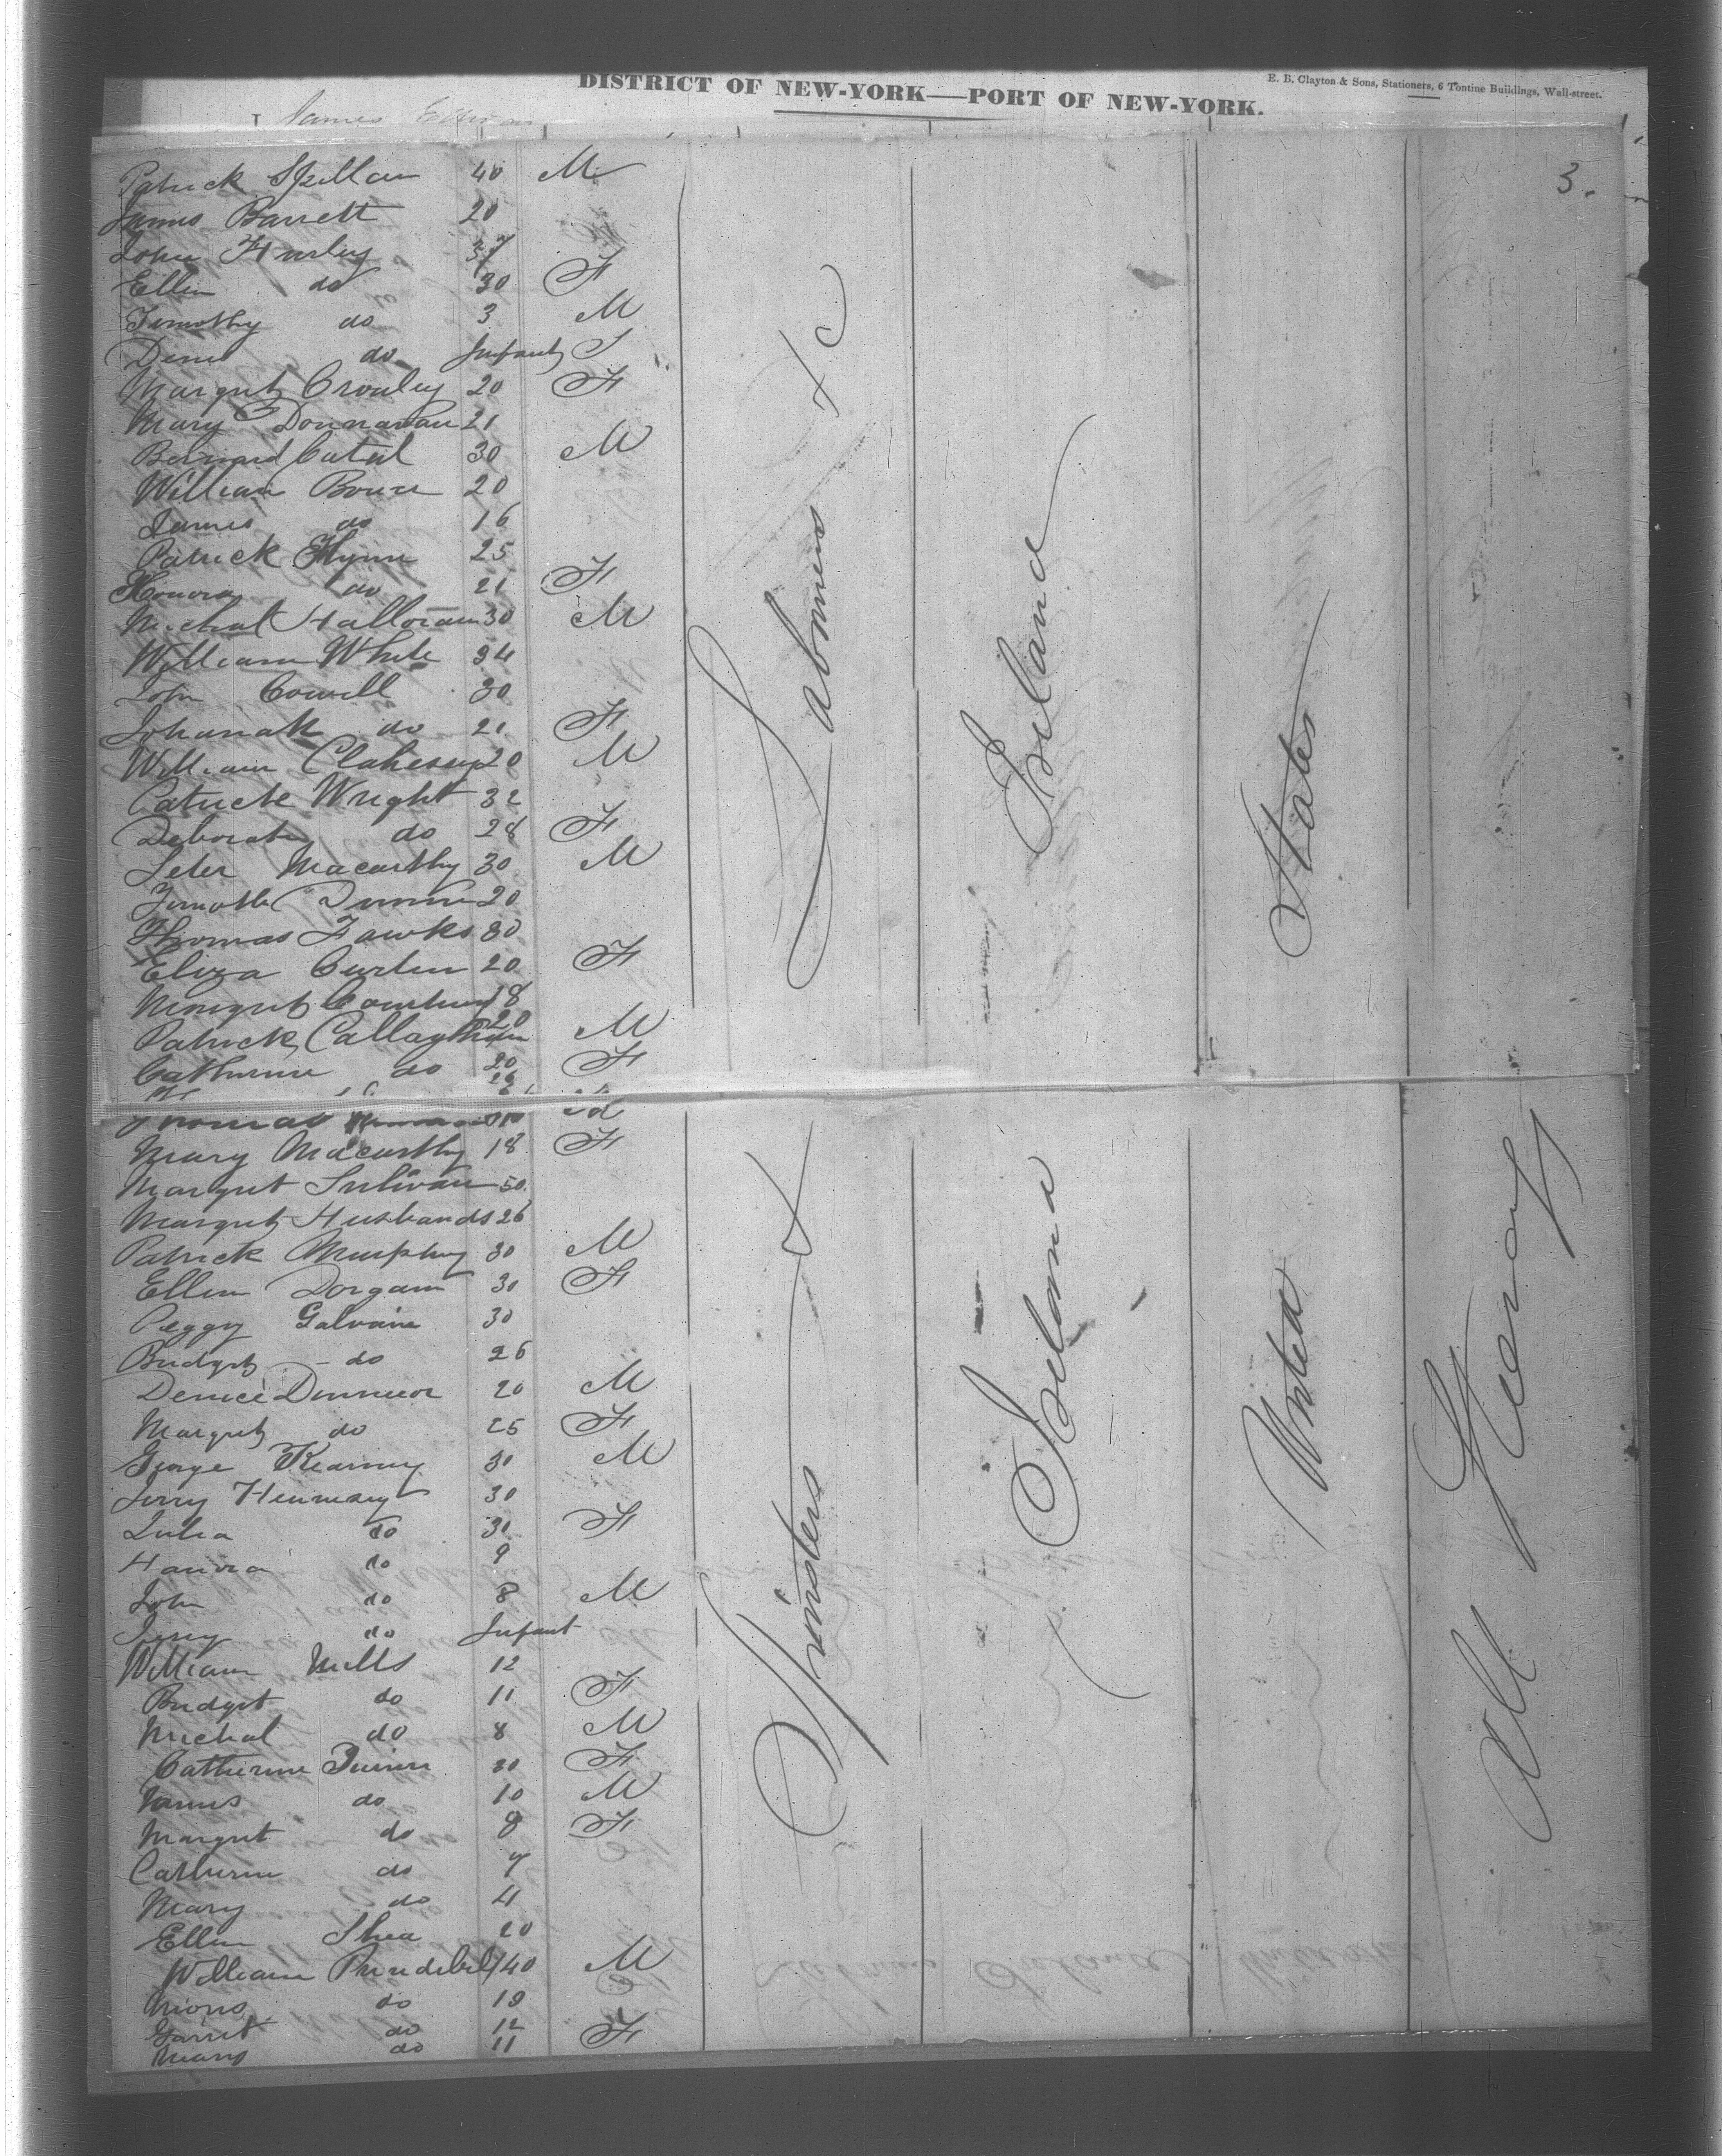 DISTRICT OF NEW-YORK—PORT OF NEW-YORK.
E. B. Clayton & Sons, Stationers, 6 Tontine Buildings, Wall-street.
James
3.
Patrick Spillan 40 M
James Barrett 20
John Hurley 37
Ellen do 30 F
Timothy do 3 M
Denis do Infant
Margret Crowley 20 F
Mary Donnavan 21
Bernard 30 M
William Bouse 20
James do 16
Patrick Flynn 25
Honora do 21 F
Michal Halloran 30 M
William White 34
John Cowell 30
Johanah do 21 F
William Clahessy 20 M
Patrick Wright 32
Deborah do 28 F
Peter Macarthy 30 M
Timothy Dunn 20
Thomas Fawks 30
Eliza Curtin 20 F
Margret 18
Patrick Callaghan 20 M
Catherine do 20 F
Thomas
Mary Macarthy 18 F
Margret Sulivan 50
Margret Husbands 26
Patrick Murphy 30 M
Ellen Dorgan 30 F
Peggy Galvain 30
Bridget do 26
20 M
Margret do 25 F
George Kearney 30 M
Jerry Hennesey 30
Julia do 30 F
Hanora do 9
John do 8 M
Jerry do Infant
William Mills 12
Bridget do 11 F
Michal do 8 M
Catherine Quinn 30 F
James do 10 M
Margret do 8 F
Catherine do 7
Mary do 4
Ellen Shea 20
William 40 M
do 19
Garret do 12
Mary do 11 F
Labourers &c
Spinsters &
Ireland
Ireland
United States
All Steerage